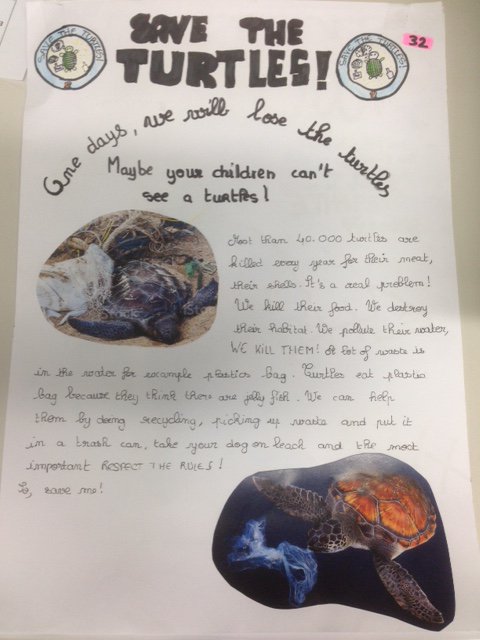 SAVE THE
TURTLES!
SAVE THE TURTLES!
SAVE THE TURTLES!
32
One days, we will lose the turtles
Maybe your children can't
see a turtles!
Most than 40.000 turtles are
killed every year for their meat,
their shells. It's a real problem!
We kill their food. We destroy
their habitat. We pollute their water,
WE KILL THEM! A lot of waste is
in the water for example plastics bag. Turtles eat plastic
bag because they think there are jelly fish. We can help
them by doing recycling, picking up waste and put it
in a trash can, take your dog on leach and the most
important RESPECT THE RULES!
So, save me!